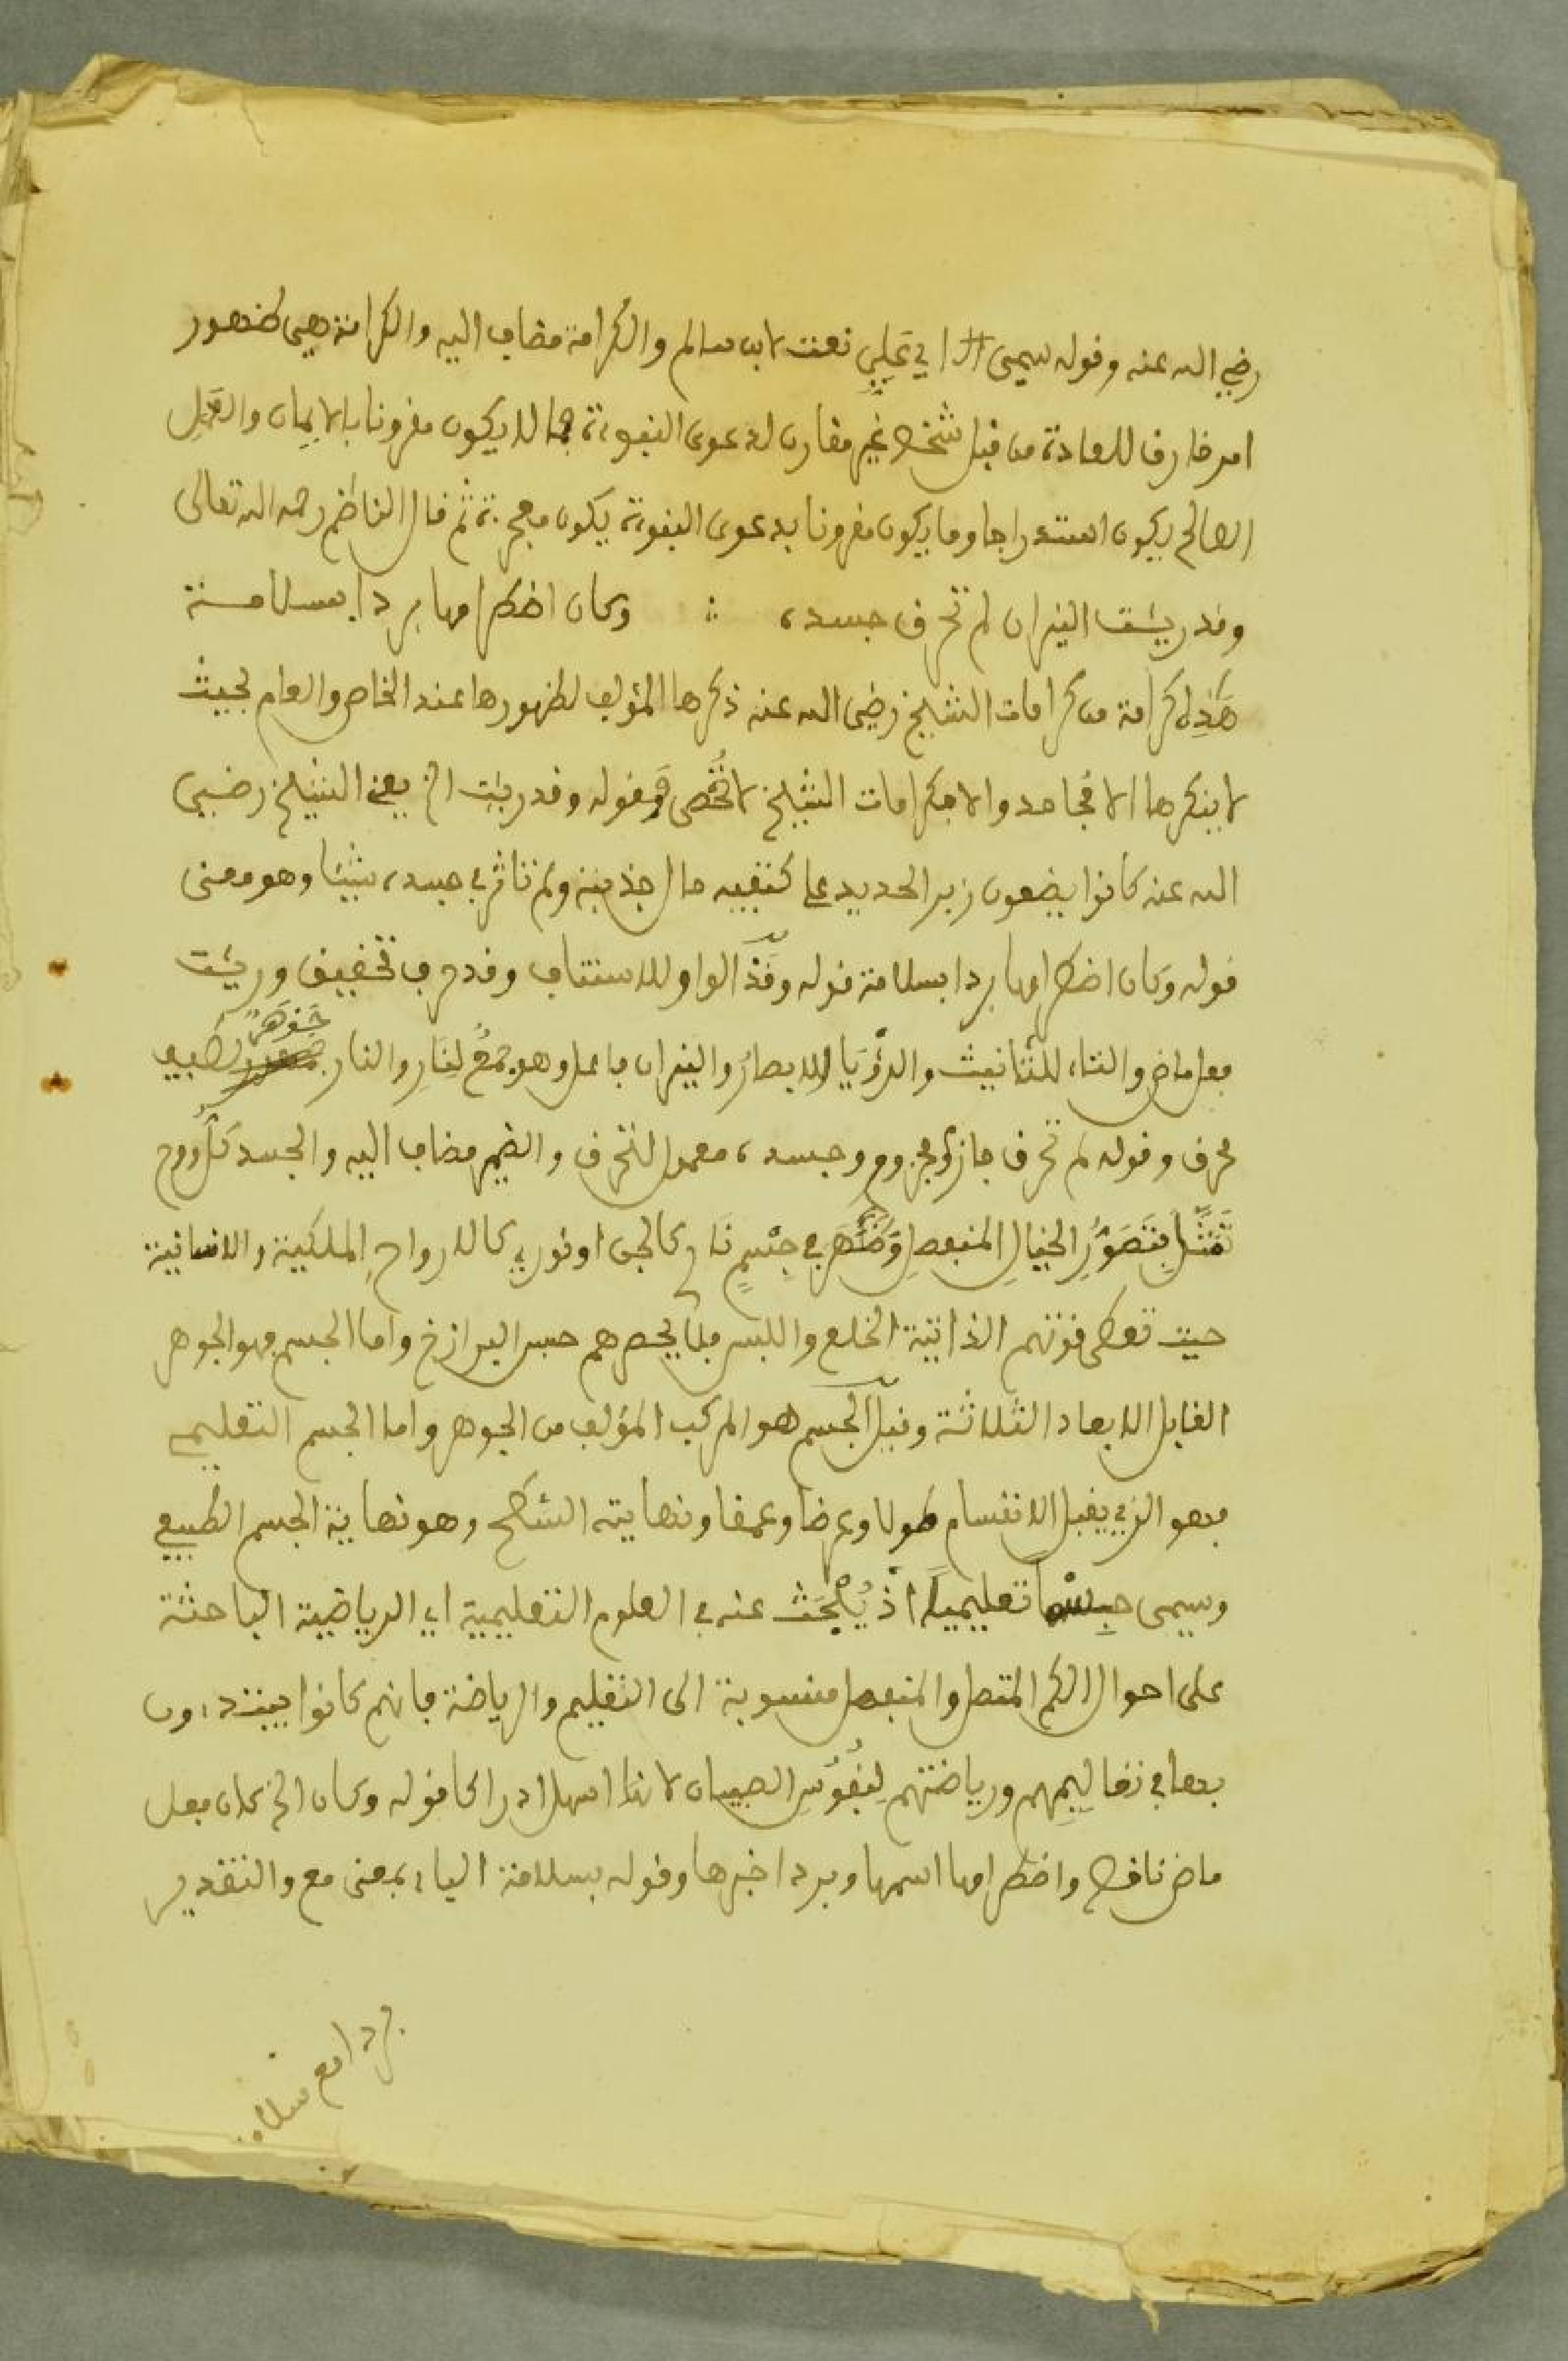 رضي الله عنه وقوله سمي الـ اي علي نعت لابن سالم والكرامة مضاف اليه والكرامة هي ظهور
امر خارق للعادة من قبل شخص غير مقارن لدعوى النبوءة فما لا يكون مقرونا بالايمان والعمل
الصالح يكون استدراجا وما يكون مقرونا بدعوى النبوءة يكون معجزة ثم قال الناظم رحمه الله تعالى
وقد ريئت النيران لم تحرق جسده ؞ وكان اضطرامها بردا بسلامة
هذه كرامة من كرامات الشيخ رضي الله عنه ذكرها المؤلف لظهورها عند الخاص والعام بحيث
لا ينكرها الا مجاحد والا فكرامات الشيخ لا تحصى وقوله وقد ريئت الخ يعني الشيخ رضي
الله عنه كانوا يضعون زبر الحديد على كتفيه حال جذبته ولم تاثر في جسده شيئا وهو معنى
قوله وكان اضطرامها بردا بسلامة قوله وقد الواو للاستئناف وقد حرف تحقيق وريئت
فعل ماض والتاء للتانيث والرؤيا الابصار والنيران فاعل وهو جمع لنار والنار جوهر لطيف
محرق وقوله لم تحرق جازم ومجزوم وجسده معمول لتحرق والضمير مضاف اليه والجسد كل روح
تمثل بتصور الخيال المنفصل وظهر في جسم نار كالجن او نوري كالارواح الملكية والانسانية
حيث تعطى قوتهم الذاتية الخلع واللبس فلا يحصرهم حبس البرازخ واما الجسم فهو الجوهر
القابل الابعاد الثلاثة وقيل الجسم هو المركب المؤلف من الجوهر واما الجسم التعليمي
فهو الذي يقبل الانقسام طولا وعرضا وعمقا ونهايته السطح وهو نهاية الجسم الطبيعي
وسمي جسما تعليميا اذ يبحث عنه في العلوم التعليمية اي الرياضية الباحثة
على احوال الكم المتصل والمنفصل منسوبة الى التعليم والرياضة فانهم كانوا يبتدءون
بها في تعاليمهم ورياضتهم لنفوس الصبيان لانها اسهل ادراكا قوله وكان الخ كان فعل
ماض ناقص واضطرامها اسمها وبردا خبرها وقوله بسلامة الباء بمعنى مع والتقدير
بردا مع سلامة